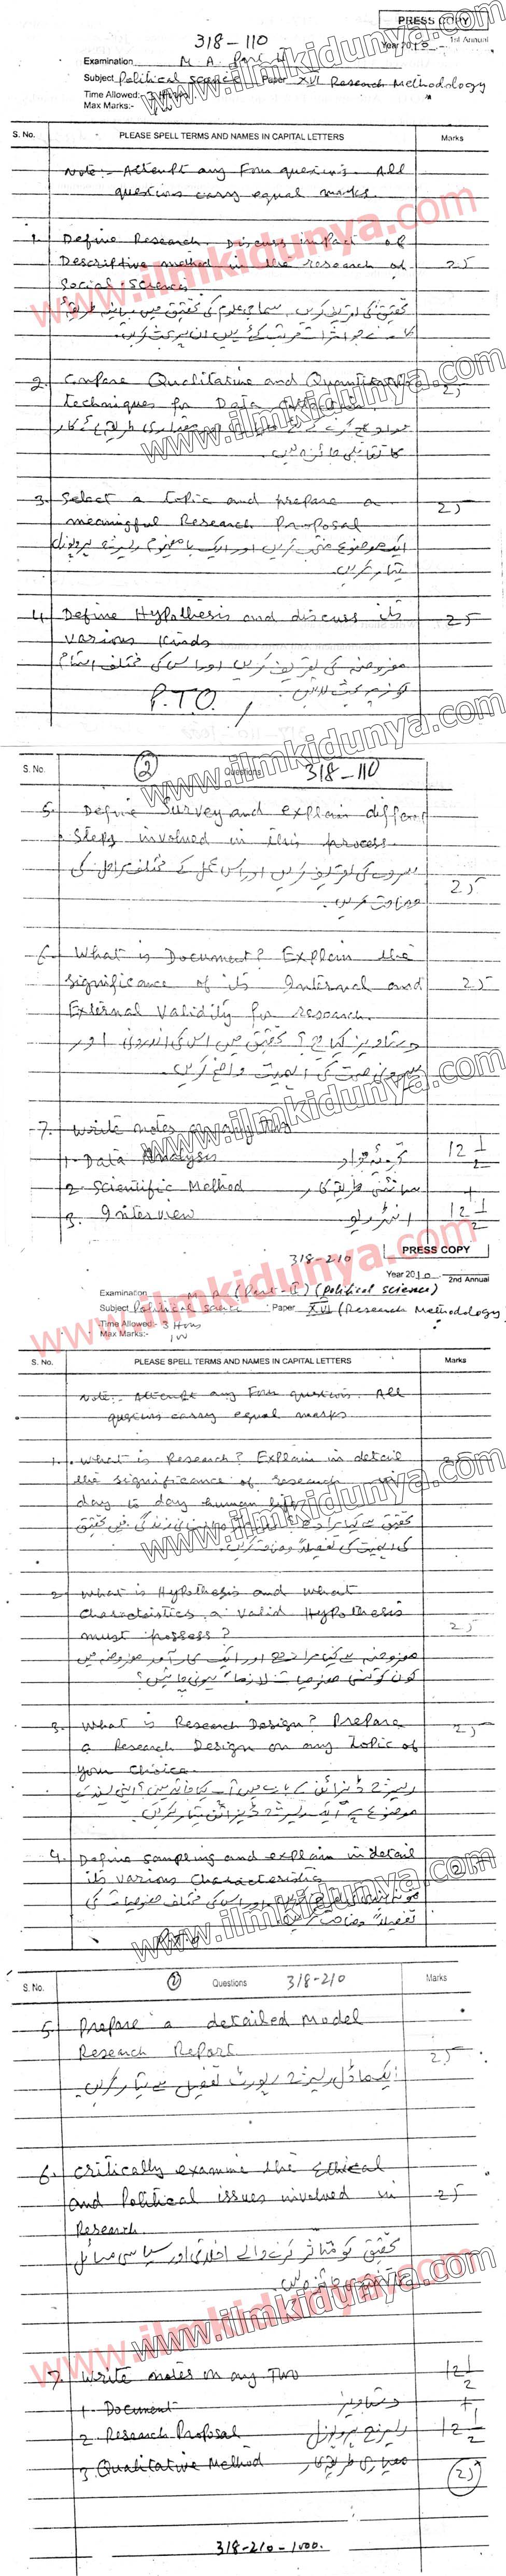 PRESS COPY
318-110
1st Annual
Year 2010
Examination M. A. Part II
Subject Political Science Paper XVI Research Methodology
Time Allowed:- 3 Hours
Max Marks:-
S. No. PLEASE SPELL TERMS AND NAMES IN CAPITAL LETTERS Marks
Note:- Attempt any Four questions. All
questions carry equal marks.
www.ilmkidunya.com
1. Define Research. Discuss impact of
Descriptive method in the research of 25
Social Sciences
تحقیق کی تعریف کریں۔ سماجی علوم کی تحقیق میں بیانیہ طریقہ
2. Compare Qualitative and Quantitative 25
techniques for Data
www.ilmkidunya.com
کا تقابلی جائزہ لیں۔
3. Select a topic and prepare a 25
meaningful Research Proposal
ایک موضوع منتخب کریں اور ایک بامفہوم ریسرچ پروپوزل
تیار کریں۔
4. Define Hypothesis and discuss its 25
various kinds
مفروضہ کی تعریف کریں اور اس کی مختلف اقسام
P.T.O.
www.ilmkidunya.com
S. No. 2 Questions 318-110
5. Define Survey and explain different
Steps involved in this process.
سروے کی تعریف کریں اور اس عمل کے مختلف مراحل کی 25
وضاحت کریں۔
6. What is Document? Explain the
significance of its Internal and 25
External Validity for research.
دستاویز کیا ہے؟ تحقیق میں اس کی اندرونی اور
بیرونی صحت کی اہمیت واضح کریں۔
www.ilmkidunya.com
7. Write notes on any two
1. Data Analysis تجزیہ مواد 12 1/2
2. Scientific Method سائنسی طریقہ کار +
3. Interview انٹرویو 12 1/2
318-210
PRESS COPY
Year 2010 2nd Annual
Examination M A (Part-II) (Political science)
Subject Political science Paper XVI (Research Methodology)
Time Allowed:- 3 Hours
Max Marks:- 100
www.ilmkidunya.com
S. No. PLEASE SPELL TERMS AND NAMES IN CAPITAL LETTERS Marks
Note:- Attempt any Four questions. All
questions carry equal marks
1. What is Research? Explain in detail
the significance of research
day to day human life
www.ilmkidunya.com
کی اہمیت کی تفصیلاً وضاحت کریں۔
2 What is Hypothesis and what
Characteristics a valid Hypothesis 25
must possess?
مفروضہ سے کیا مراد ہے اور ایک کارآمد مفروضہ میں
کون کونسی خصوصیات لازماً ہونی چاہئیں؟
3. What is Research Design? Prepare 25
a Research Design on any Topic of
your Choice.
ریسرچ ڈیزائن کے بارے میں آپ کیا جانتے ہیں؟ اپنی پسند کے
موضوع پر ایک ریسرچ ڈیزائن تیار کریں۔
4. Define sampling and explain in detail
its various Characteristics 25
www.ilmkidunya.com
تفصیلاً وضاحت کریں
S. No. 2 Questions 318-210 Marks
5. Prepare a detailed model
Research Report. 25
ایک ماڈل ریسرچ رپورٹ تفصیل سے تیار کریں۔
6. Critically examine the Ethical
and Political issues involved in 25
Research.
تحقیق کو متاثر کرنے والے اخلاقی اور سیاسی مسائل
www.ilmkidunya.com
7. Write notes on any Two 12 1/2
1. Document دستاویز +
2. Research Proposal ریسرچ پروپوزل 12 1/2
3. Qualitative Method معیاری طریقہ کار 25
318-210-1000.